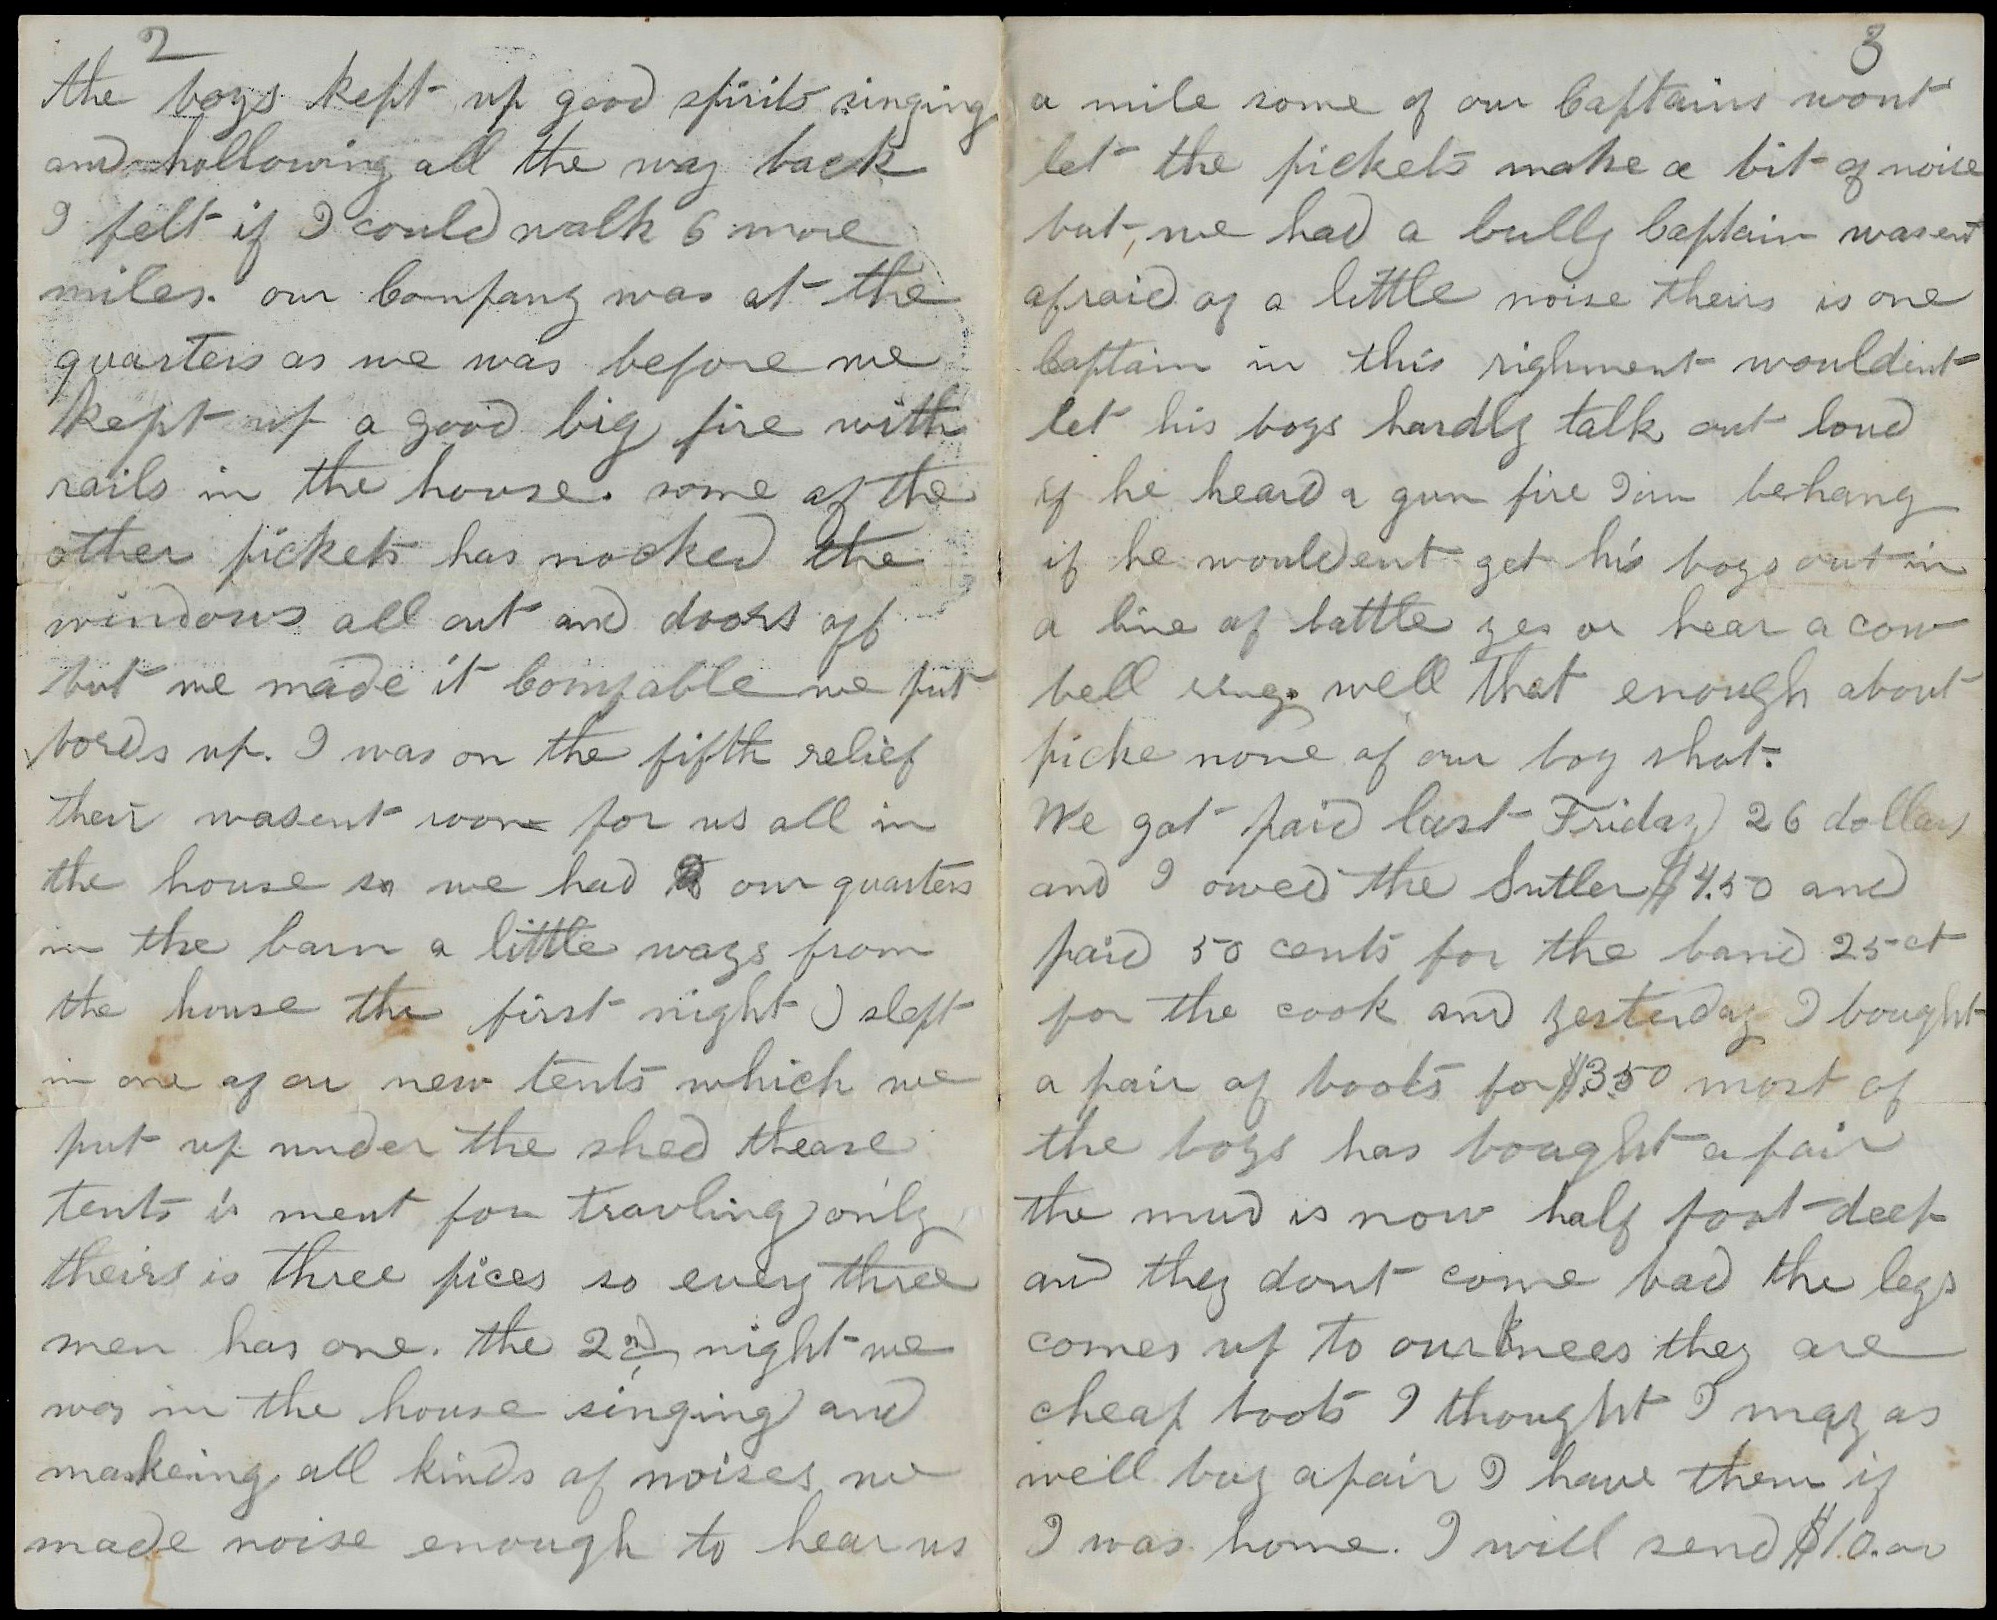 2
the boys kept up good spirits singing
and hollowing all the way back
I felt if I could walk 6 more
miles. our Company was at the
quarters as we was before we
kept up a good big fire with
rails in the house. some of the
other pickets has nocked the
windows all out and doors off
but we made it Comfable we put
bords up. I was on the fifth relief
their wasent room for us all in
the house so we had our quarters
in the barn a little ways from
the house the first night I slept
in one of our new tents which we
put up under the shed thease
tents is ment for travling only
theirs is three pices so every three
men has one. the 2nd night we
was in the house singing and
maskeing all kinds of noises we
made noise enough to hear us
3
a mile some of our Captains wont
let the pickets make a bit of noise
but, we had a bully Captain wasent
afraid of a little noise theirs is one
Captain in this righment wouldint
let his boys hardly talk out loud
if he heard a gun fire I'm be hang
if he wouldent get his boys out in
a line of battle yes or hear a cow
bell ring. well that enough about
picke none of our boy shot.
We got paid last Friday 26 dollars
and I owed the Sutler $4.50 and
paid 50 cents for the band 25 ct
for the cook and yesterday I bought
a pair of boots for $3.50 most of
the boys has bought a pair
the mud is now half foot deep
and they dont come bad the legs
comes up to our knees they are
cheap boots I thought I may as
well buy a pair I have them if
I was home. I will send $10. or